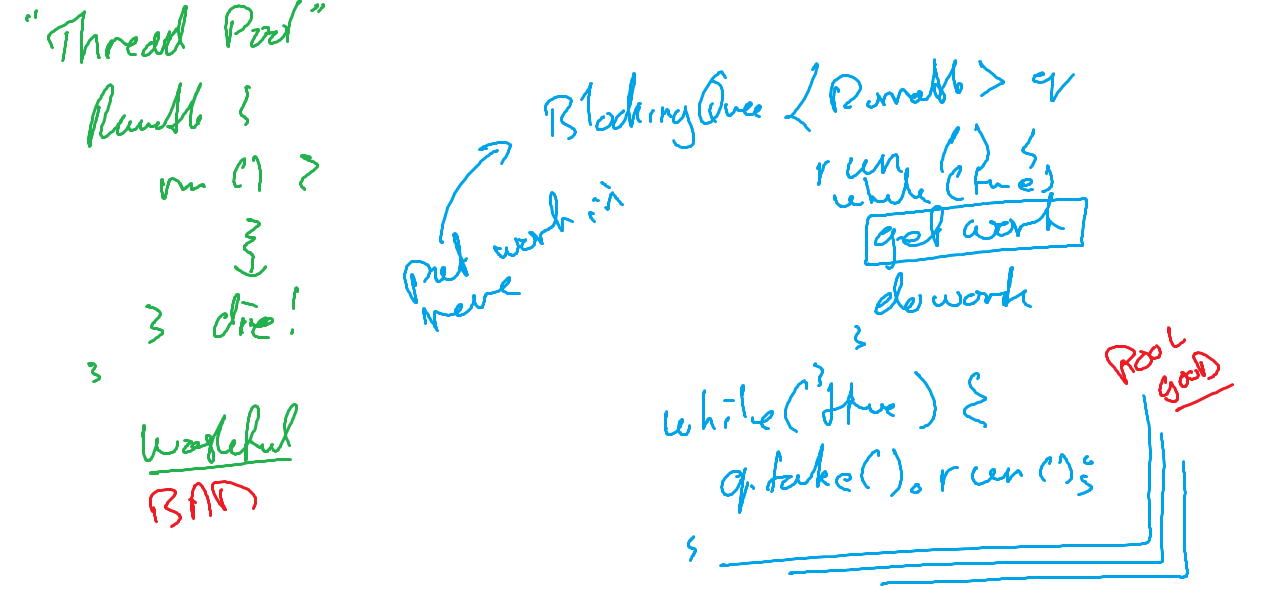 "Thread Pool"
Runnable {
run () {
}
} die!
}
wasteful
BAD
BlockingQueue <Runnable> q
put work in
run () {
while (true)
get work
do work
}
}
while (true) {
q.take().run();
}
POOL
GOOD